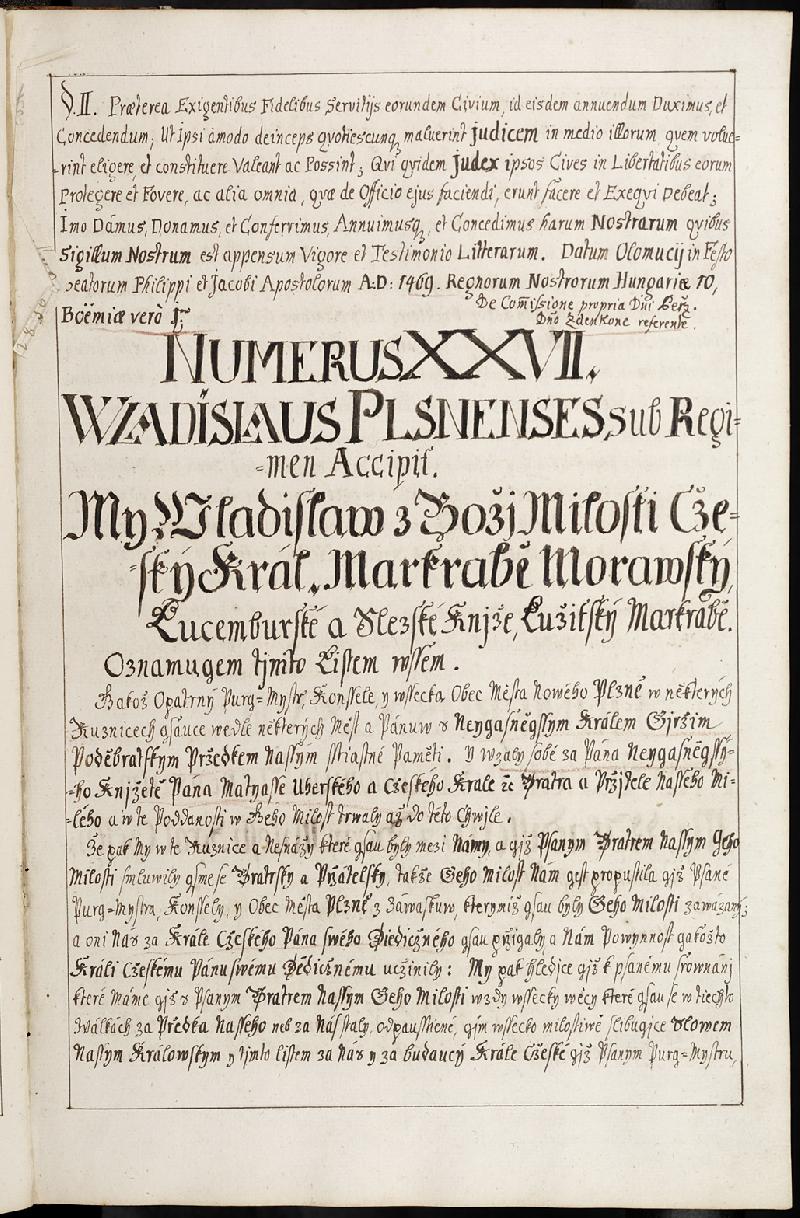 §. II. Præterea Exigentibus Fidelibus Servitijs eorundem Civium, id eisdem annuendum Duximus, et
Concedendum; Ut Ipsi àmodo deinceps qvotiescunq, maluerint Judicem in medio illorum qvem volue=
rint eligere, et constituere Valeant ac Possint; Qvi qvidem Judex ipsos Cives in Libertatibus eorum
Protegere et Fovere, ac alia omnia, qvæ de Officio ejus faciendi, erunt facere et Exeqvi Debeat;
Imo Dámus, Donamus, et Conferrimus, Annuimusq, et Concedimus harum Nostrarum qvibus
Sigillum Nostrum est appensum Vigore et Testimonio Litterarum. Datum Olomucij in Festo
beatorum Philippi et Jacobi Apostolorum A:D: 1469. Regnorum Nostrorum Hungariæ 10,
Boëmiæ verò
De Com̃issione propria Dni
Dno Zdenkone referente.
NUMERUS XXVII.
WŁADISŁAUS PLSNENSES, sub Regi=
=men Accipit.
My Wladislaw z Boží Milosti Cže=
=ský Král, Markrabě Morawský,
Lucemburské a Slezské Knjže, Lužitský Markrabě.
Oznamugem tjmto Listem wssem.
Jakož Opatrný Purg=Mystr, Konssele, y wssecka Obec Města Nowého Plzně w některých
Ruznicech gsauce wedle některých Měst a Pánuw s Neygasněgssym Králem Giržim
Poděbratským Pržedkem Nassým sstiastné Paměti. Y wzaly sobě za Pána Neygasněgssý=
=ho Knjžetě Pána Matyasse Uherského a Cžeského Krále ꝛc Bratra a Pržjtele Nasseho Mi=
=lého a w te Poddanosti w Jeho Milost trwaly až do této Chwjle.
Že pak My w te Ruznice a Nesnázy které gsau byly mezi Namy, a giž Psanym Bratrem Nassym Geho
Milosti smluwily gsme se Bratrsky a Pržátelsky, takže Geho Milost Nam gest propustila giž Psané
Purg=Mystra, Konssely, y Obec Města Plzně z Záwaskuw, kterymiž gsau byly Geho Milosti zawázaný;
a oni Nás za Krále Cžeskeho Pána swého Diedičzného gsau pržigaly a Nám Powynnost gakožto
Králi Cžeskému Pánu swému Dědičznému učzinily: My pak hledice giž k psanému srownánj
které Máme giž s Psanym Bratrem Nassym Geho Milosti wzdy wssecky wěcy které gsau se w tiechto
Wálkách za Předka Nasseho neb za Nás staly, odpaussticné, gim wssecko milostiwě slibugjce Slowem
Nassym Králowskym y tjmto listem za Nás y za budaucý Krále Cžeské giž Psanym Purg=Mystru,